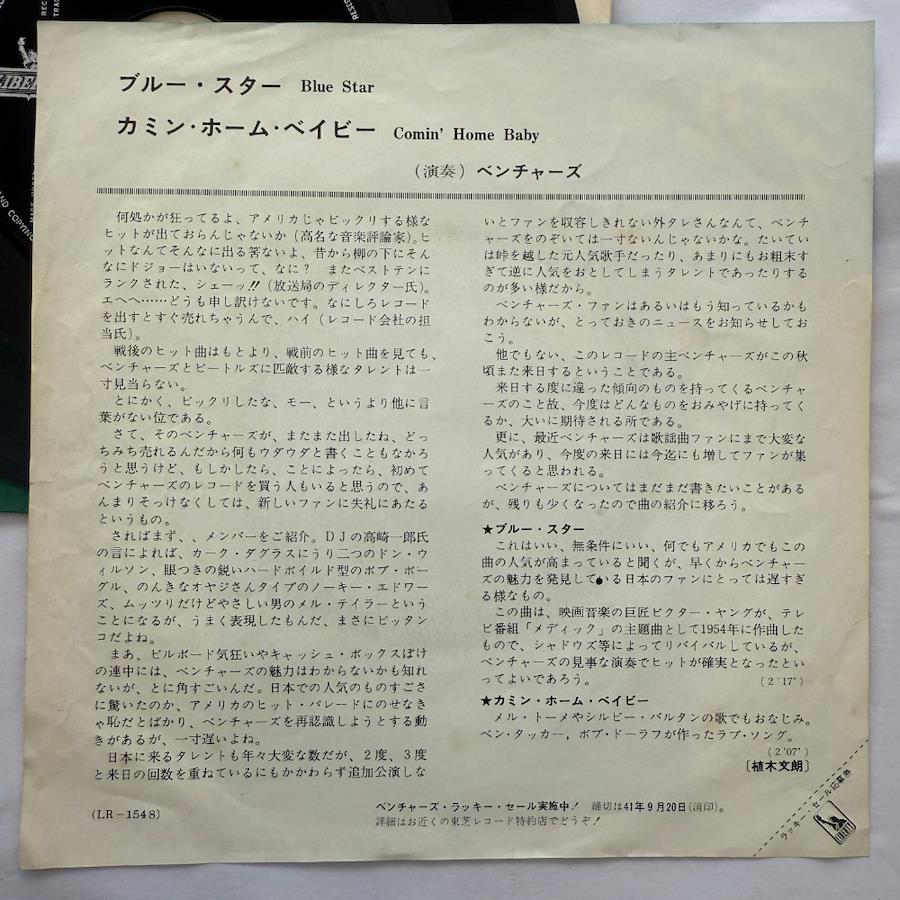 ブルー・スター Blue Star
カミン・ホーム・ベイビー Comin' Home Baby
(演奏) ベンチャーズ
何処かが狂ってるよ、アメリカじゃビックリする様な
ヒットが出ておらんじゃないか (高名な音楽評論家)。ヒ
ットなんてそんなに出る筈ないよ、昔から柳の下にそん
なにドジョーはいないって、なに? またベストテンに
ランクされた、シェーッ!! (放送局のディレクター氏)。
エヘヘ……どうも申し訳けないです。なにしろレコード
を出すとすぐ売れちゃうんで、ハイ (レコード会社の担
当氏)。
戦後のヒット曲はもとより、戦前のヒット曲を見ても、
ベンチャーズとビートルズに匹敵する様なタレントは一
寸見当らない。
とにかく、ビックリしたな、モー、というより他に言
葉がない位である。
さて、そのベンチャーズが、またまた出したね、どっ
ちみち売れるんだから何もウダウダと書くこともなかろ
うと思うけど、もしかしたら、ことによったら、初めて
ベンチャーズのレコードを買う人もいると思うので、あ
んまりそっけなくしては、新しいファンに失礼にあたる
というもの。
さればまず、、メンバーをご紹介。DJの高崎一郎氏
の言によれば、カーク・ダグラスにうり二つのドン・ウ
ィルソン、眼つきの鋭いハードボイルド型のボブ・ボー
グル、のんきなオヤジさんタイプのノーキー・エドワー
ズ、ムッツリだけどやさしい男のメル・テイラーという
ことになるが、うまく表現したもんだ、まさにピッタン
コだよね。
まあ、ビルボード気狂いやキャッシュ・ボックスぼけ
の連中には、ベンチャーズの魅力はわからないかも知れ
ないが、とに角すごいんだ。日本での人気のものすごさ
に驚いたのか、アメリカのヒット・パレードにのせなき
ゃ恥だとばかり、ベンチャーズを再認識しようとする動
きがあるが、一寸遅いよね。
日本に来るタレントも年々大変な数だが、2度、3度
と来日の回数を重ねているにもかかわらず追加公演しな
いとファンを収容しきれない外タレさんなんて、ベンチ
ャーズをのぞいては一寸ないんじゃないかな。たいてい
は峠を越した元人気歌手だったり、あまりにもお粗末す
ぎて逆に人気をおとしてしまうタレントであったりする
のが多い様だから。
ベンチャーズ・ファンはあるいはもう知っているかも
わからないが、とっておきのニュースをお知らせしてお
こう。
他でもない、このレコードの主ベンチャーズがこの秋
頃また来日するということである。
来日する度に違った傾向のものを持ってくるベンチャ
ーズのこと故、今度はどんなものをおみやげに持ってく
るか、大いに期待される所である。
更に、最近ベンチャーズは歌謡曲ファンにまで大変な
人気があり、今度の来日には今迄にも増してファンが集
ってくると思われる。
ベンチャーズについてはまだまだ書きたいことがある
が、残りも少くなったので曲の紹介に移ろう。
★ブルー・スター
これはいい、無条件にいい、何でもアメリカでもこの
曲の人気が高まっていると聞くが、早くからベンチャー
ズの魅力を発見している日本のファンにとっては遅すぎ
る様なもの。
この曲は、映画音楽の巨匠ビクター・ヤングが、テレ
ビ番組「メディック」の主題曲として1954年に作曲した
もので、シャドウズ等によってリバイバルしているが、
ベンチャーズの見事な演奏でヒットが確実となったとい
ってよいであろう。 (2'17")
★カミン・ホーム・ベイビー
メル・トーメやシルビー・バルタンの歌でもおなじみ。
ベン・タッカー, ボブ・ドーラフが作ったラブ・ソング。
(2'07")
〔植木文朗〕
(LR-1548)
ベンチャーズ・ラッキー・セール実施中! 締切は41年9月20日(消印)。
詳細はお近くの東芝レコード特約店でどうぞ!
ラッキー・セール応募券
LIBERTY